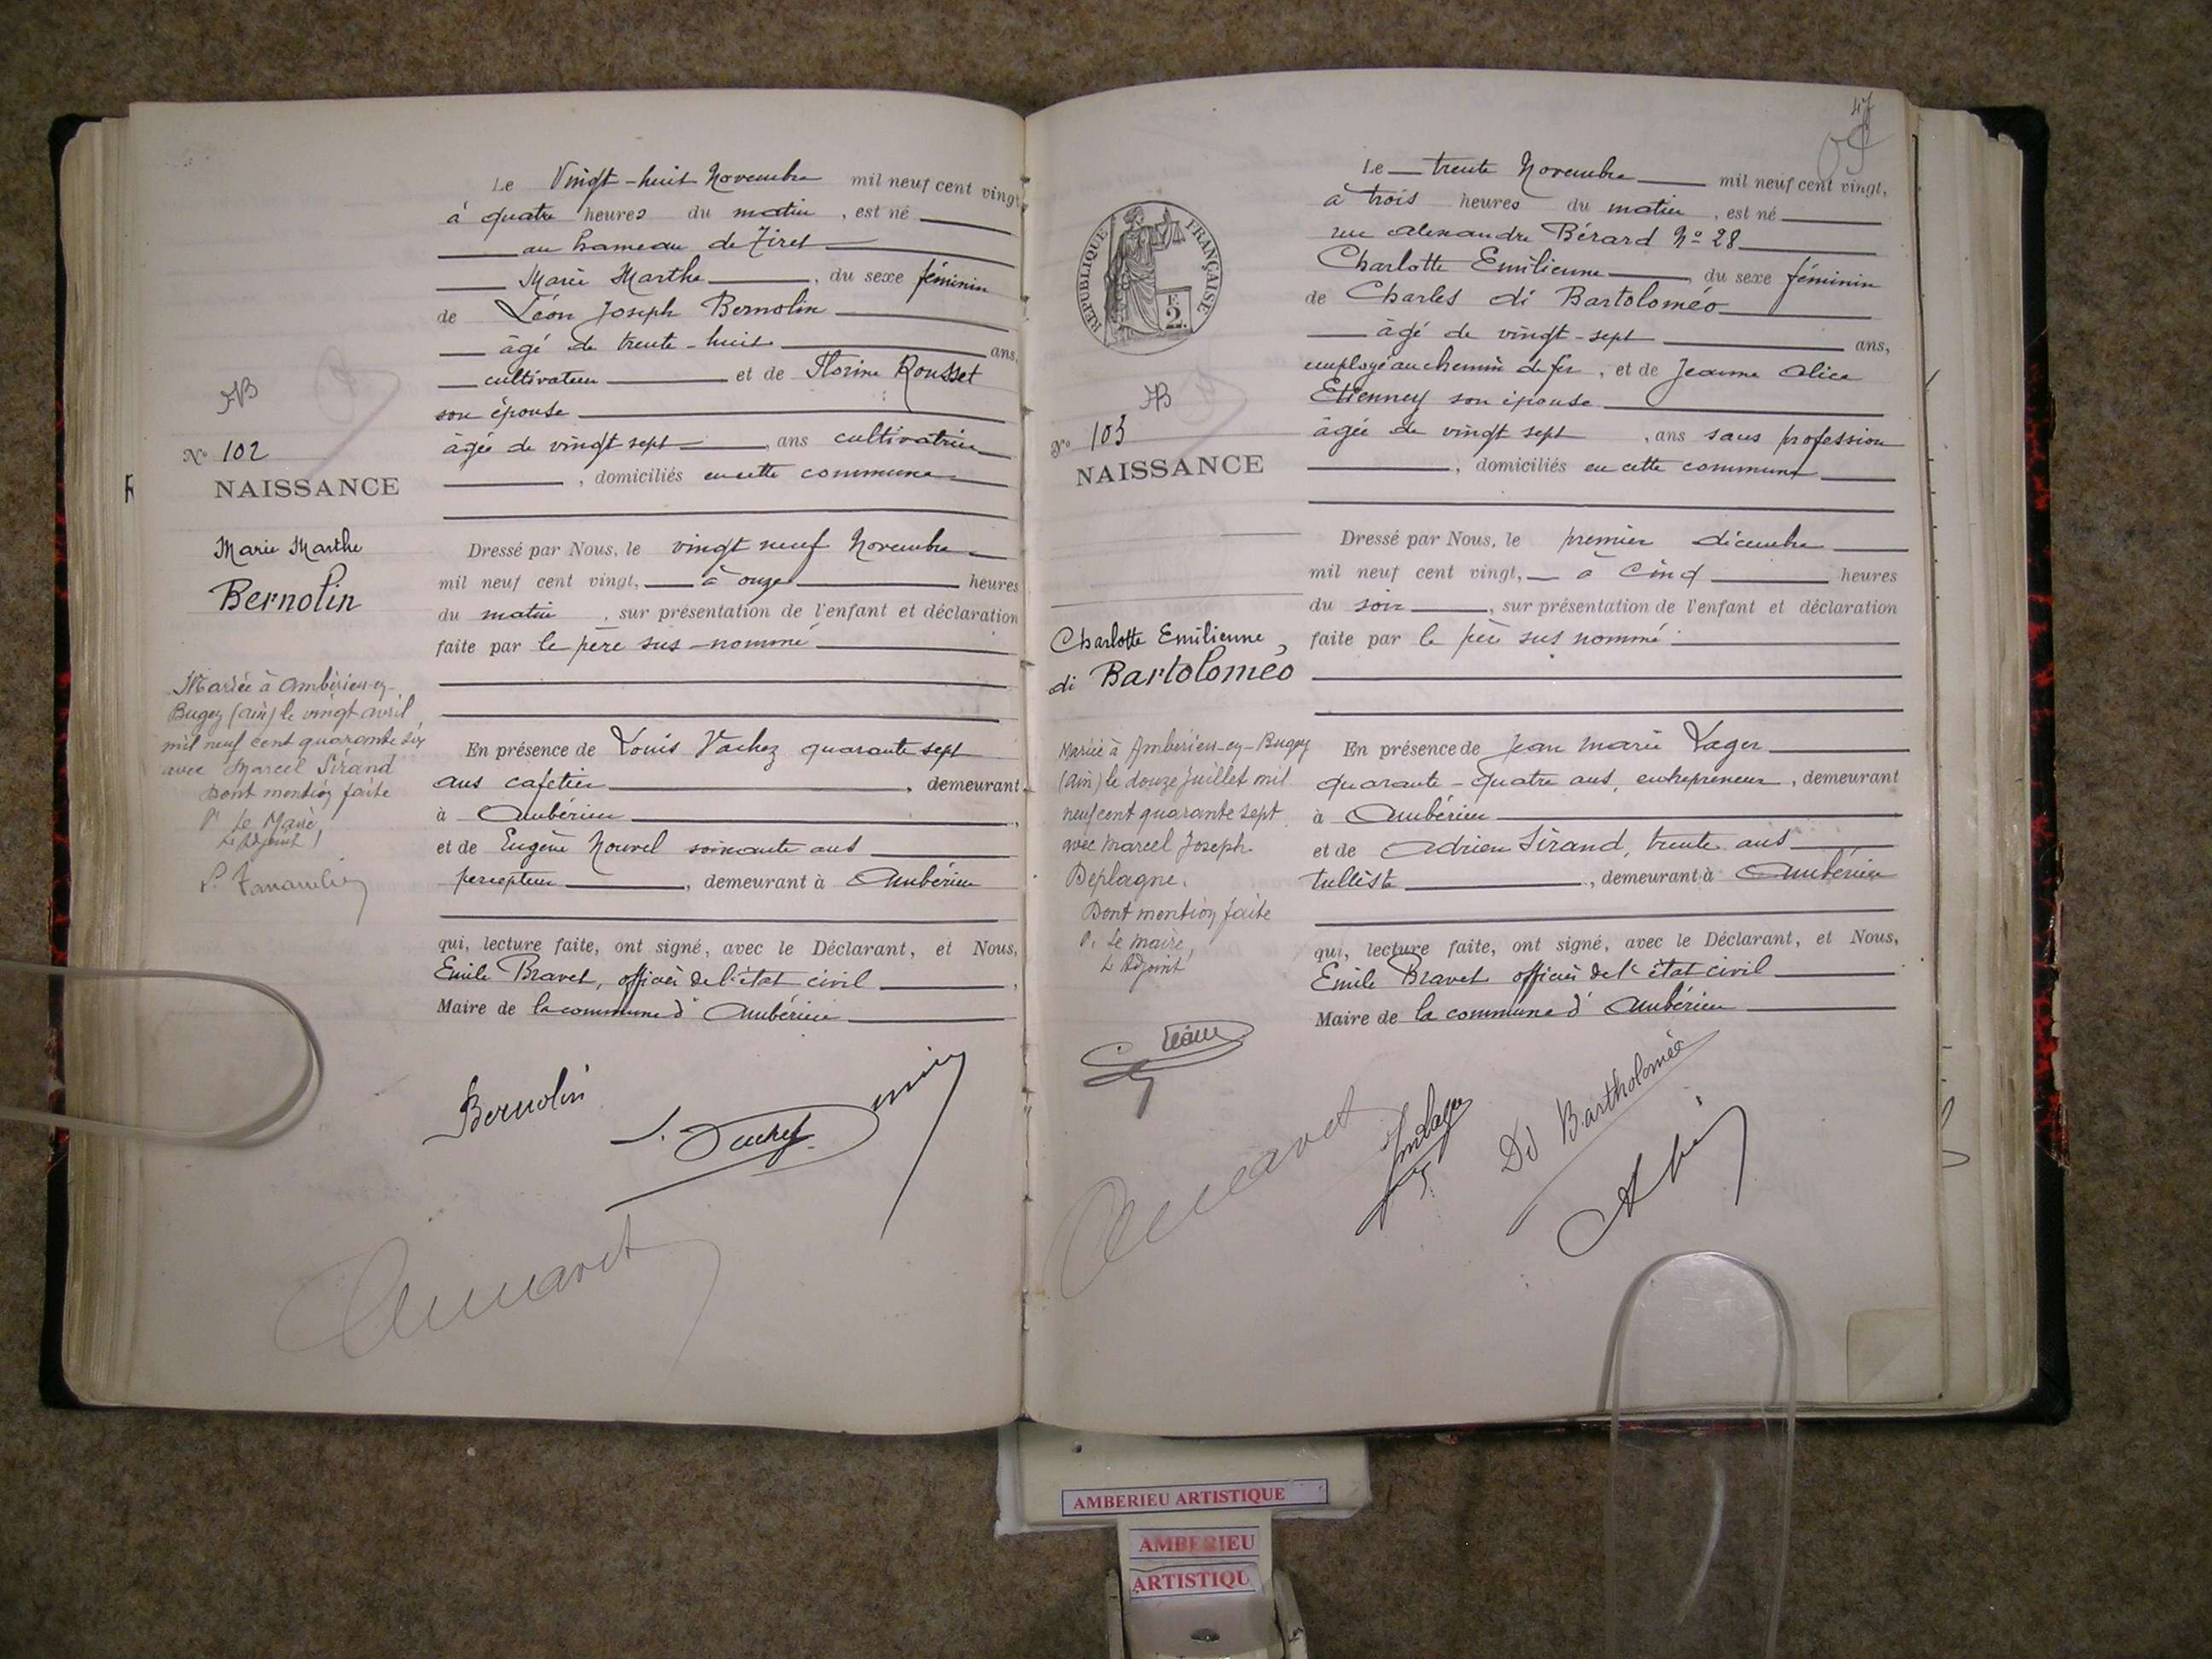 Le Vingt-huit Novembre mil neuf cent vingt
à quatre heures du matin, est né
au hameau de Tiret
Marie Marthe, du sexe féminin
de Léon Joseph Bernolin
âgé de trente-huit ans,
cultivateur et de Florine Rousset
son épouse
âgée de vingt sept ans cultivatrice
, domiciliés en cette commune
N° 102
NAISSANCE
Marie Marthe
Bernolin
Dressé par Nous, le vingt neuf Novembre
mil neuf cent vingt, à onze heures
du matin, sur présentation de l'enfant et déclaration
faite par le père sus-nommé
Mariée à Ambérieu-en-
Bugey (ain) le vingt avril
mil neuf cent quarante six
avec Marcel Sirand
Dont mention faite
Pr Le Maire
L'Adjoint
En présence de Louis Vachez quarante sept
ans cafetier, demeurant
à Ambérieu
et de Eugène Nouvel soixante ans
percepteur, demeurant à Ambérieu
qui, lecture faite, ont signé, avec le Déclarant, et Nous,
Emile Bravet, officier de l'état civil
Maire de la commune d'Ambérieu
Bernolin
47
RÉPUBLIQUE FRANÇAISE
F.
2.
Le trente Novembre mil neuf cent vingt,
à trois heures du matin, est né
rue alexandre Bérard N° 28
Charlotte Emilienne du sexe féminin
de Charles di Bartoloméo
âgé de vingt-sept ans,
employé au chemin de fer, et de Jeanne Alice
Etienney son épouse
âgée de vingt sept, ans sans profession
, domiciliés en cette commune
N° 103
NAISSANCE
Charlotte Emilienne
di Bartoloméo
Dressé par Nous, le premier décembre
mil neuf cent vingt, à cinq heures
du soir, sur présentation de l'enfant et déclaration
faite par le père sus nommé
Mariée à Ambérieu-en-Bugey
(Ain) le douze juillet mil
neuf cent quarante sept
avec Marcel Joseph
Deplagne.
Dont mention faite
P. Le maire,
L'Adjoint
En présence de Jean Marie Lager
quarante-quatre ans, entrepreneur, demeurant
à Ambérieu
et de Adrien Sirand, trente ans
tulliste, demeurant à Ambérieu
qui, lecture faite, ont signé, avec le Déclarant, et Nous,
Emile Bravet officier de l'état civil
Maire de la commune d'Ambérieu
Di Bartholoméo
AMBERIEU ARTISTIQUE
AMBERIEU
ARTISTIQU